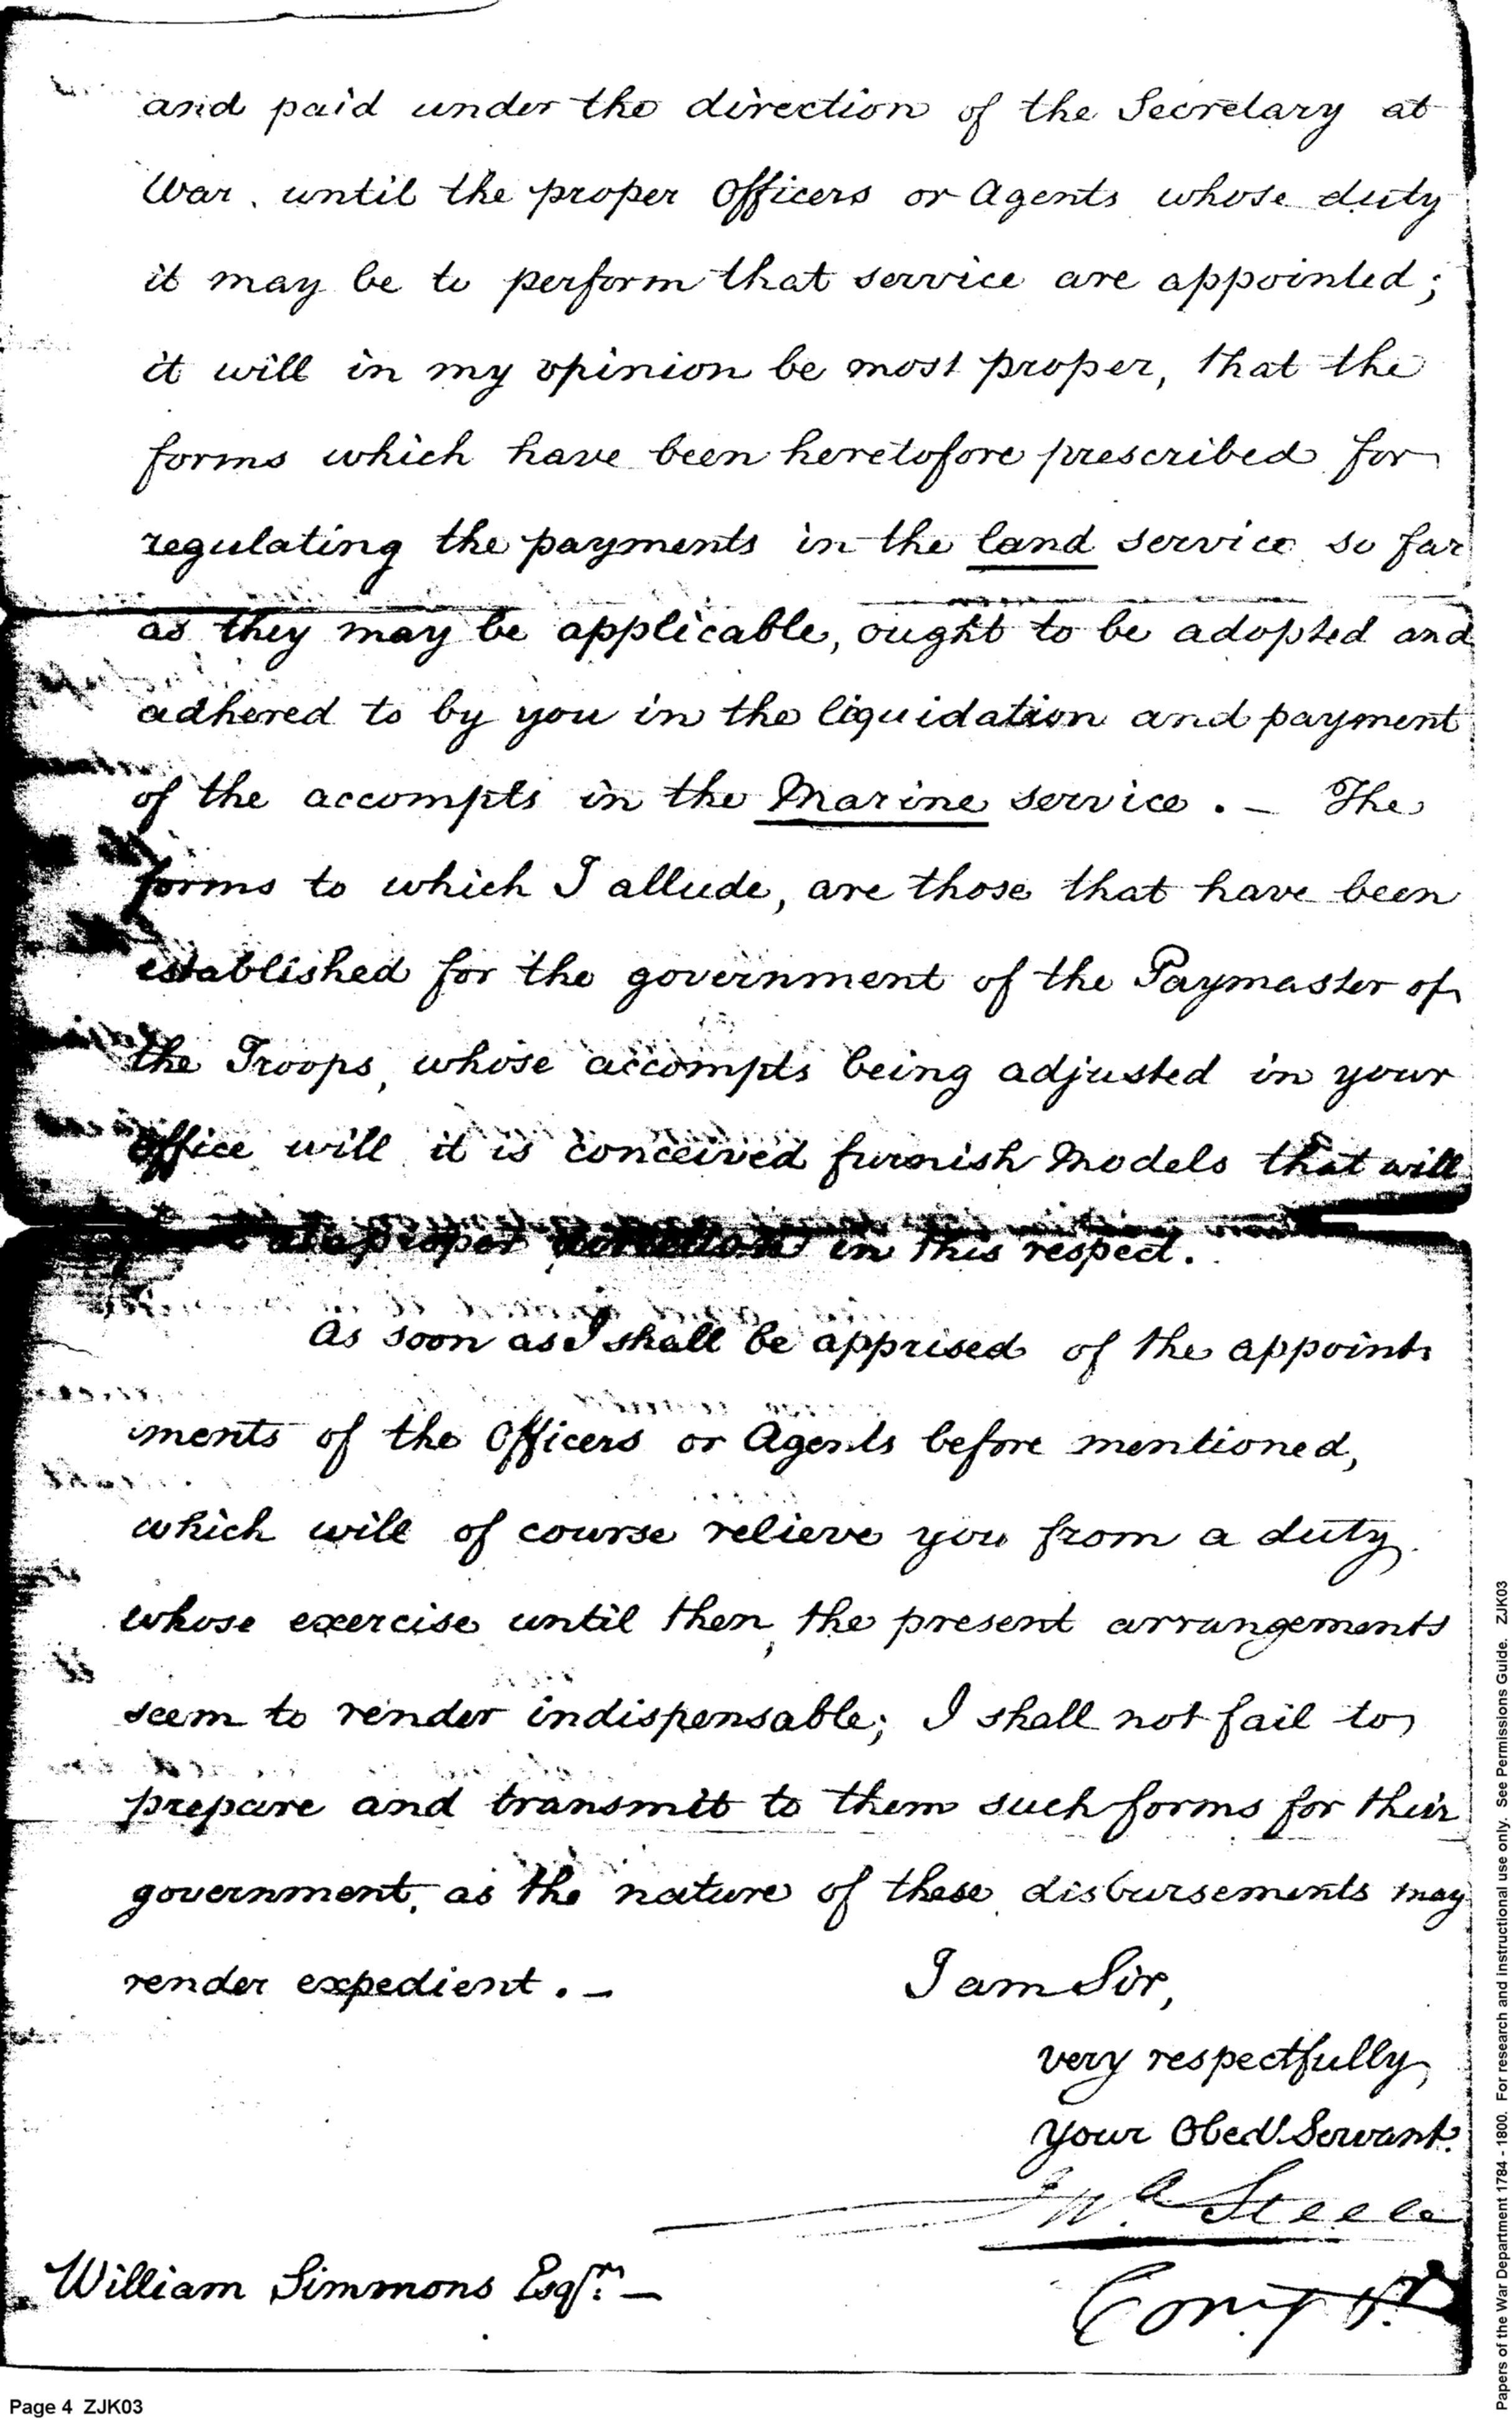 and paid under the direction of the Secretary at
War, until the proper Officers or Agents whose duty
it may be to perform that service are appointed;
it will in my opinion be most proper, that the
forms which have been heretofore prescribed for
regulating the payments in the land service so far
as they may be applicable, ought to be adopted and
adhered to by you in the liquidation and payment
of the accompts in the Marine service. – The
forms to which I allude, are those that have been
established for the government of the Paymaster of
the Troops, whose accompts being adjusted in your
office will it is conceived furnish Models that will
proper in this respect.
As soon as I shall be apprised of the appoint:
ments of the Officers or Agents before mentioned,
which will of course relieve you from a duty
whose exercise until then, the present arrangements
seem to render indispensable; I shall not fail to
prepare and transmit to them such forms for their
government, as the nature of these disbursements may
render expedient. –
I am Sir,
very respectfully,
Your Obedt. Servant.
Jno. Steele
Comptr.
William Simmons Esqr. –
Page 4 ZJK03
Papers of the War Department 1784 - 1800. For research and instructional use only. See Permissions Guide. ZJK03